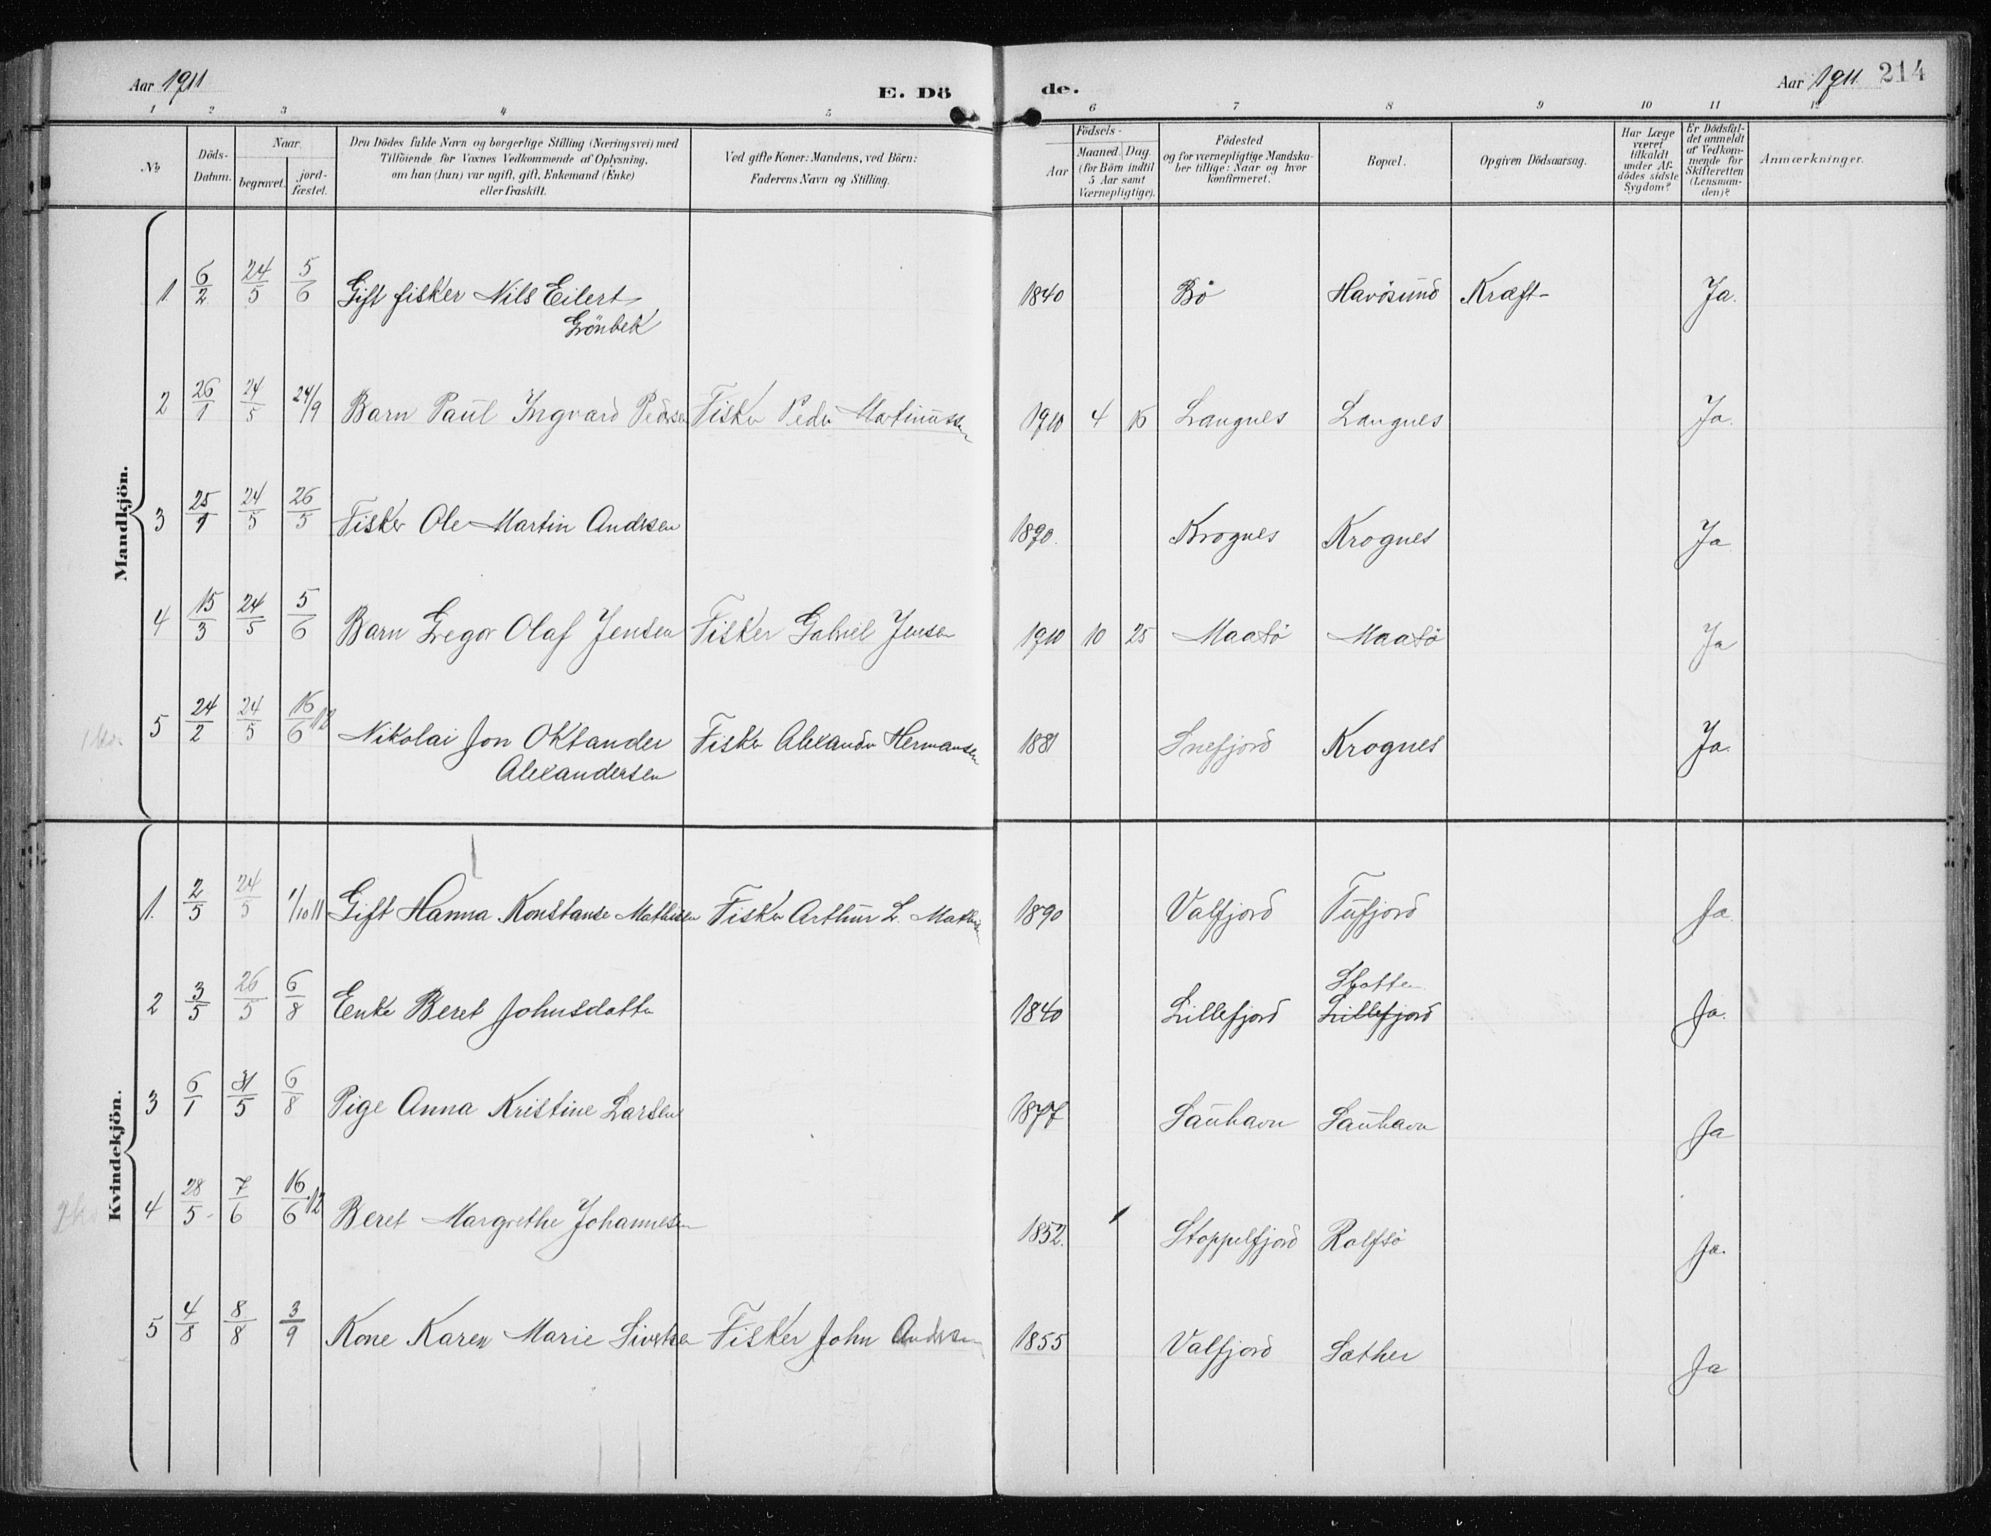 Aar 1911 E. Dö de. Aar 1911. 214
1 2 3 4 5 6 7 8 9 10 11 12
№ Döds-Datum. Naar begravet. jord-fæstet. Den Dödes fulde Navn og borgerlige Stilling (Næringsvei) med Tilföiende for Voxnes Vedkommende af Oplysning, om han (hun) var ugift, gift, Enkemand (Enke) eller fraskilt. Ved gifte Koner: Mandens, ved Börn: Faderens Navn og Stilling. Födsels- Aar Maaned. Dag. (for Börn indtil 5 Aar samt Værnepligtige). Födested og for værnepligtige Mandskaber tillige: Naar og hvor konfirmeret. Bopæl. Opgiven Dödsaarsag. Har Læge været tilkaldt under Afdödes sidste Sygdom? Er Dödsfaldet anmeldt af Vedkommende for Skifteretten (Lensmanden)? Anmærkninger.
Mandkjön.
1 6/2 24/5 5/6 Gift fisker Nils Eilert 1840 Bö Havösund Kræft- Ja.
Grönbek
2 26/1 24/5 24/9 Barn Paul Ingvard Pedersen Fisker Peder Martinussen 1910 4 15 Langnes Langnes Ja.
3 25/1 24/5 26/5 Fisker Ole Martin Andersen 1890. Krognes Krognes Ja
4 15/3 24/5 5/6 Barn Gregor Olaf Jensen Fisker Gabriel Jensen 1910 10 25 Maasö Maasö Ja
5 24/2 24/5 16/6 12 Nikolai Jon Oktander Fisker Alexander Hermansen 1881 Snefjord Krognes Ja.
Alexandersen
Kvindekjön.
1. 2/5 24/5 1/10 11 Gift Hanna Konstanse Mathisen Fisker Arthur L. Mathisen 1890 Valfjord Tufjord Ja.
Slotten
2 3/5 26/5 6/8 Enke Beret Johnsdatter 1840 Lillefjord Lillefjord Ja.
3 6/1 31/5 6/8 Pige Anna Kristine Larsen 1877 Sauhavn Sauhavn Ja
4 28/5 7/6 16/6 12 Beret Margrethe Johannesen 1852. Stoppelfjord Rolfsö Ja.
5 4/8 8/8 3/9 Kone Karen Marie Sivertsen Fisker John Andersen 1855 Valfjord Sæther Ja